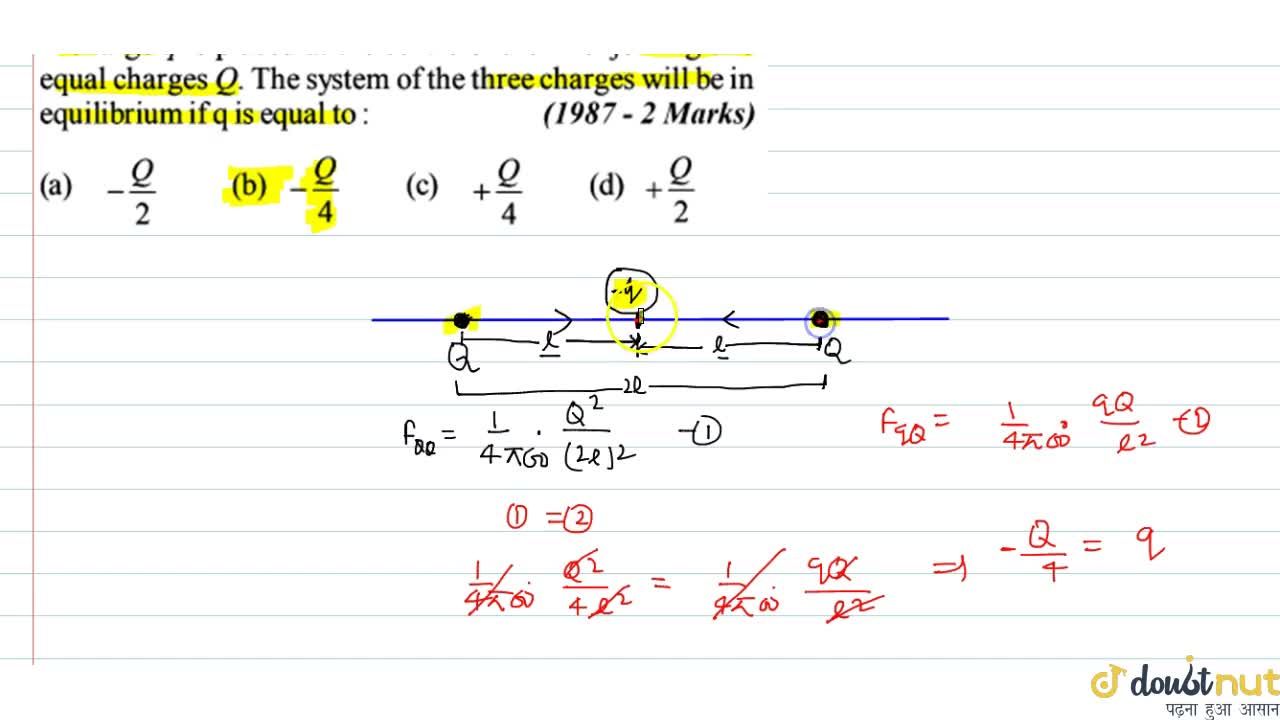 equal charges Q. The system of the three charges will be in
equilibrium if q is equal to : (1987 - 2 Marks)
(a) -Q/2 (b) -Q/4 (c) +Q/4 (d) +Q/2
-q
l l
Q Q
2l
F_QQ = 1/4π∈0 . Q²/(2l)² -①
F_qQ = 1/4π∈0 . qQ/l² -①
① = ②
1/4π∈0 . Q²/4l² = 1/4π∈0 . qQ/l² ⇒ -Q/4 = q
doubtnut
पढ़ना हुआ आसान